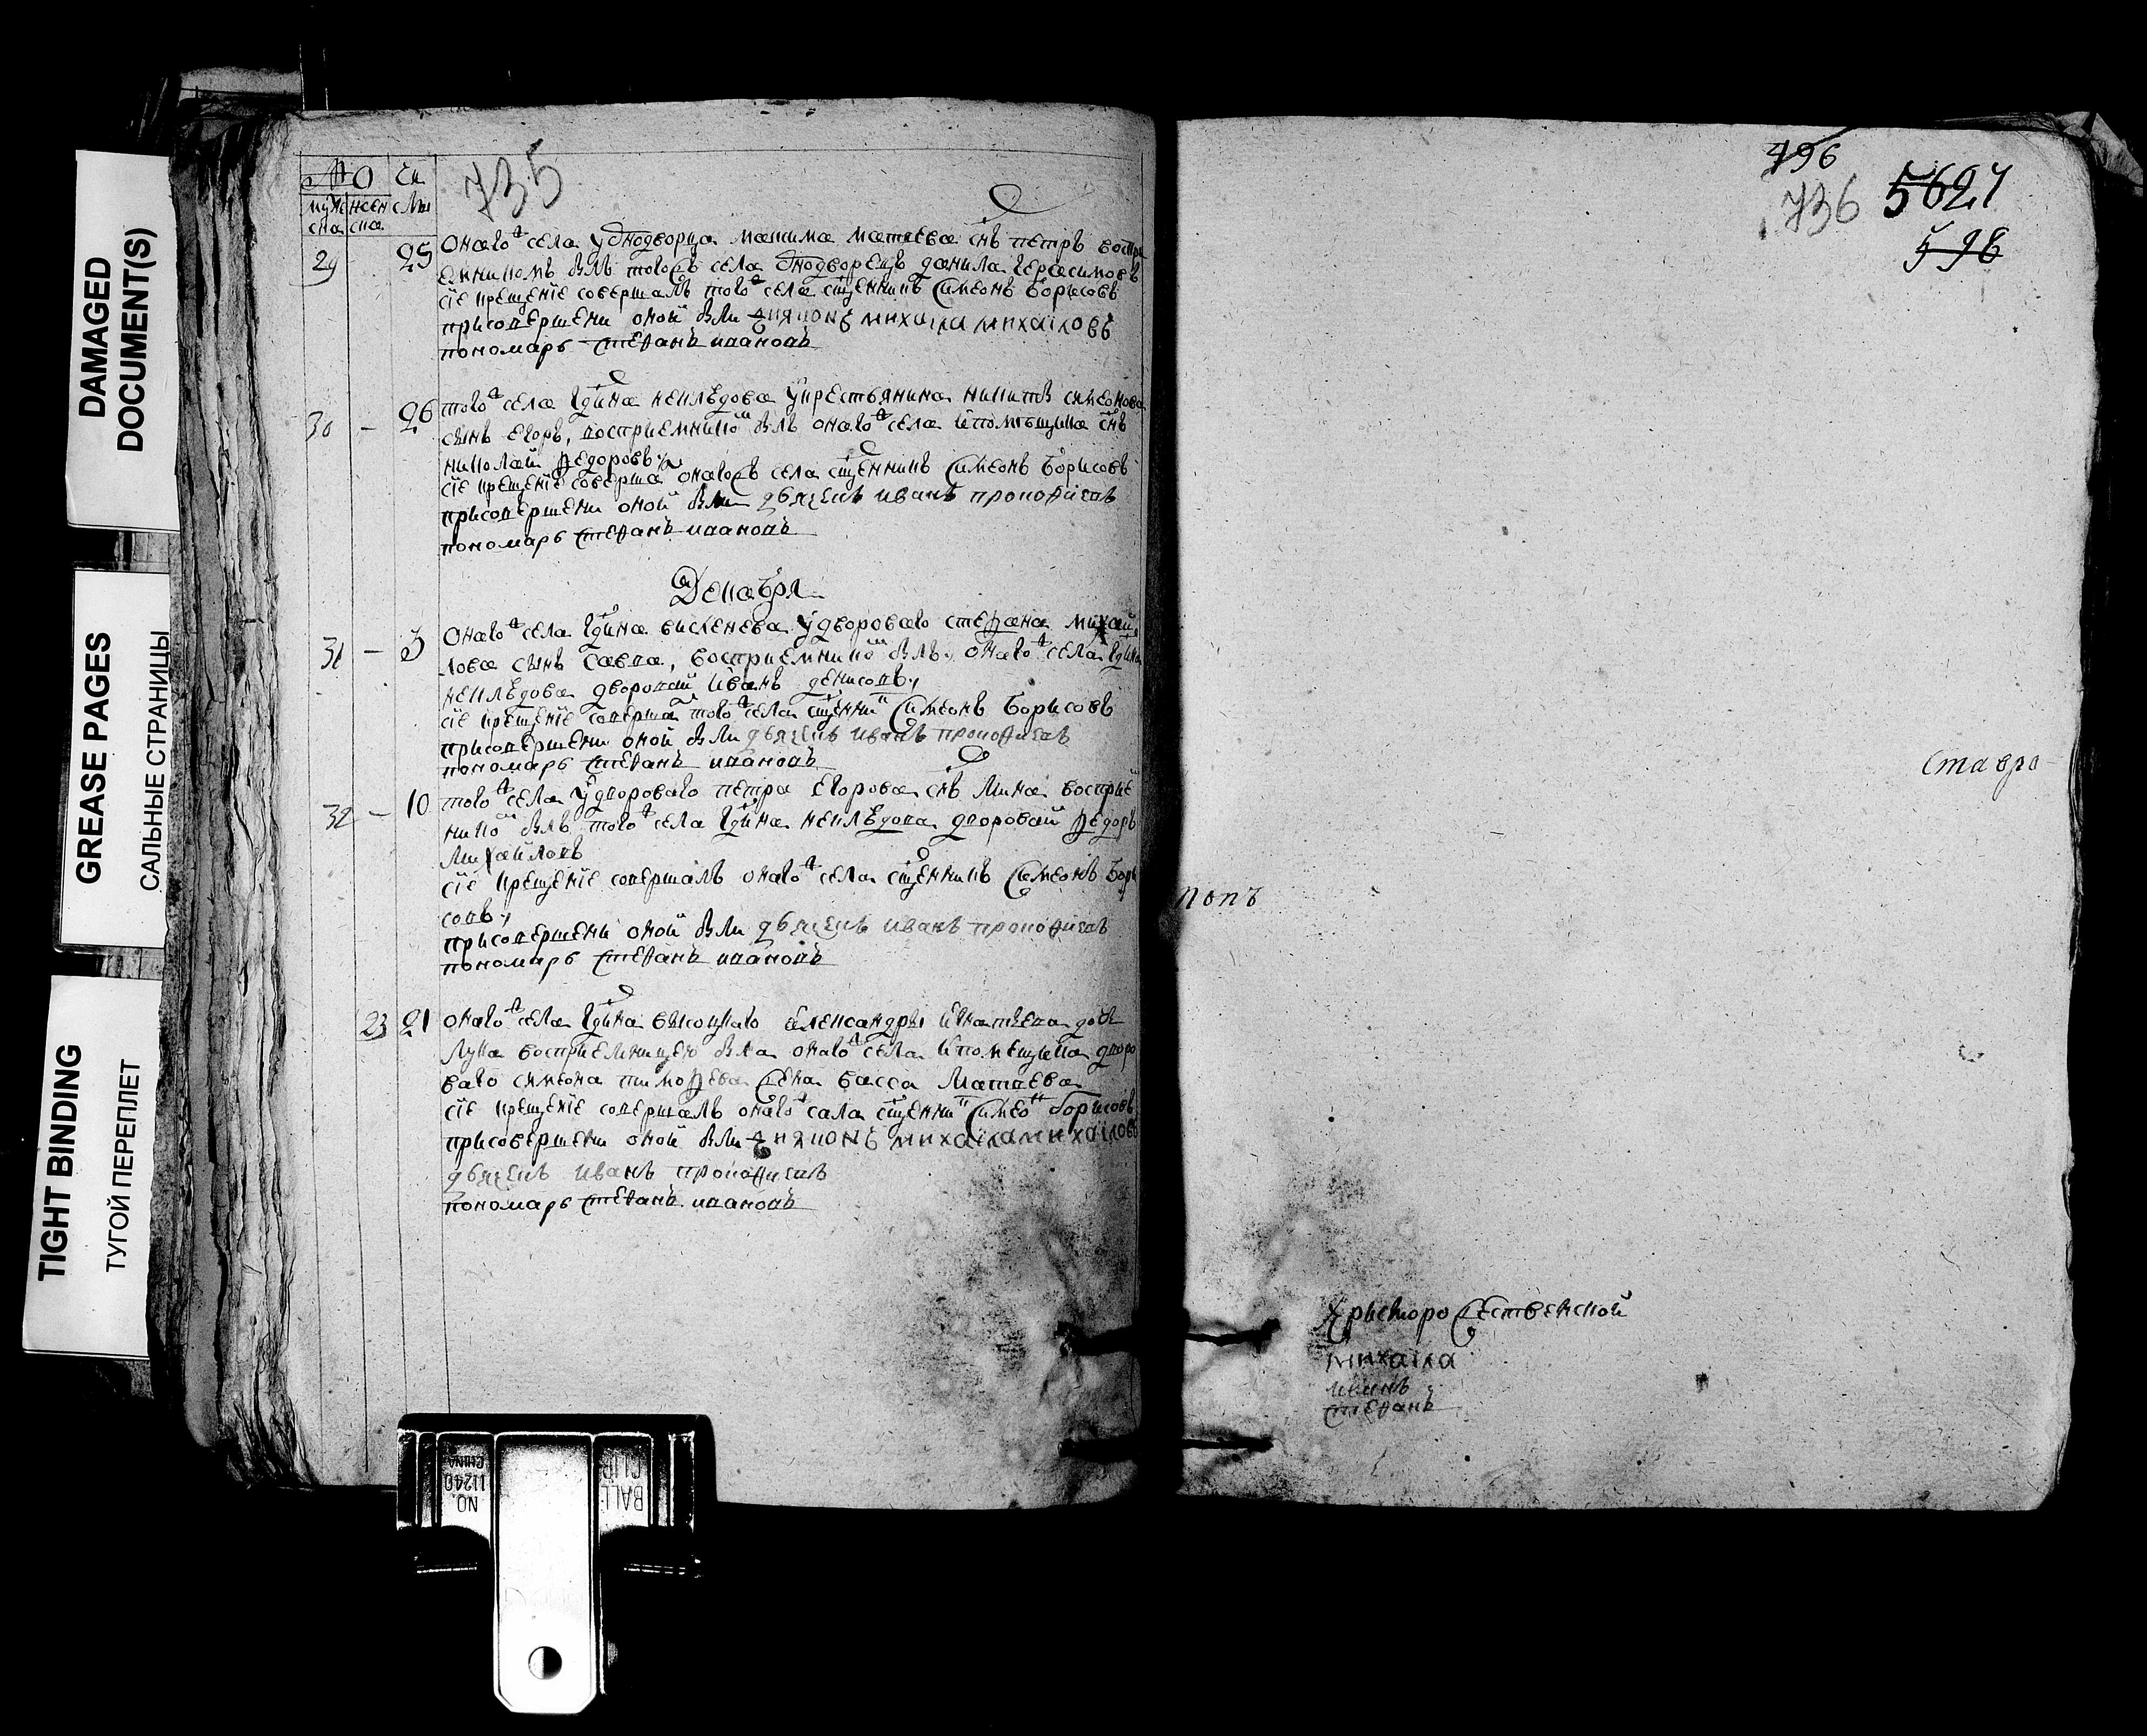 DAMAGED
DOCUMENT(S)
GREASE PAGES
САЛЬНЫЕ СТРАНИЦЫ
TIGHT BINDING
ТУГОЙ ПЕРЕПЛЕТ
735
29 25 Онаго села у однодворца максима матвева снъ петръ воспри
емникомъ былъ тогожъ села однодворецъ данила герасимовъ
сїе крещенїе совершалъ того села сщенникъ Симеонъ Борисовъ
присовершени оной были дияконъ михаила михаиловъ
пономарь стефанъ ивановъ
30 - 26 того села Гдина неклѣдова у крестьянина никиты симеонова
сынъ егоръ, восприемнико былъ онаго села помѣщика снъ
николай федоровъ
сїе крещенїе соверша онагожъ села сщенникъ Симеонъ Борисовъ
присовершени оной были дьячекъ иванъ прокофиевъ
пономарь стефанъ ивановъ
Декабря
31 - 3 Онаго села Гдина у двороваго стефана михаи
лова сынъ савва, восприемнико былъ онаго села Гдина
неклѣдова дворовай иванъ денисовъ
сїе крещенїе соверша того села сщенни Симеонъ Борисовъ
присовершени оной были дьячекъ иванъ прокофиевъ
пономарь стефанъ ивановъ
32 - 10 того села у двороваго петра егорова снъ мина восприе
нико былъ того села Гдина неклѣдова дворовай федоръ
михайловъ
сїе крещенїе совершалъ онаго села сщенникъ Симеонъ Бори
совъ
присовершени оной были дьячекъ иванъ прокофиевъ
пономарь стефанъ ивановъ
23 21 онаго села Гдина александры игнатьева дочь
восприемницею была онаго села помещика дворо
ваго симеона тимофева жена васса матвева
сїе крещенїе совершалъ онаго сала сщенни Симео борисовъ
присовершени оной были дияконъ михаила михаиловъ
дьячекъ иванъ прокофиевъ
пономарь стефанъ ивановъ
NO.
11240
CHINA
BALL
CLIP
496
736 5627
598
ставро
попъ
христорождественской
михаила
иванъ
стефанъ